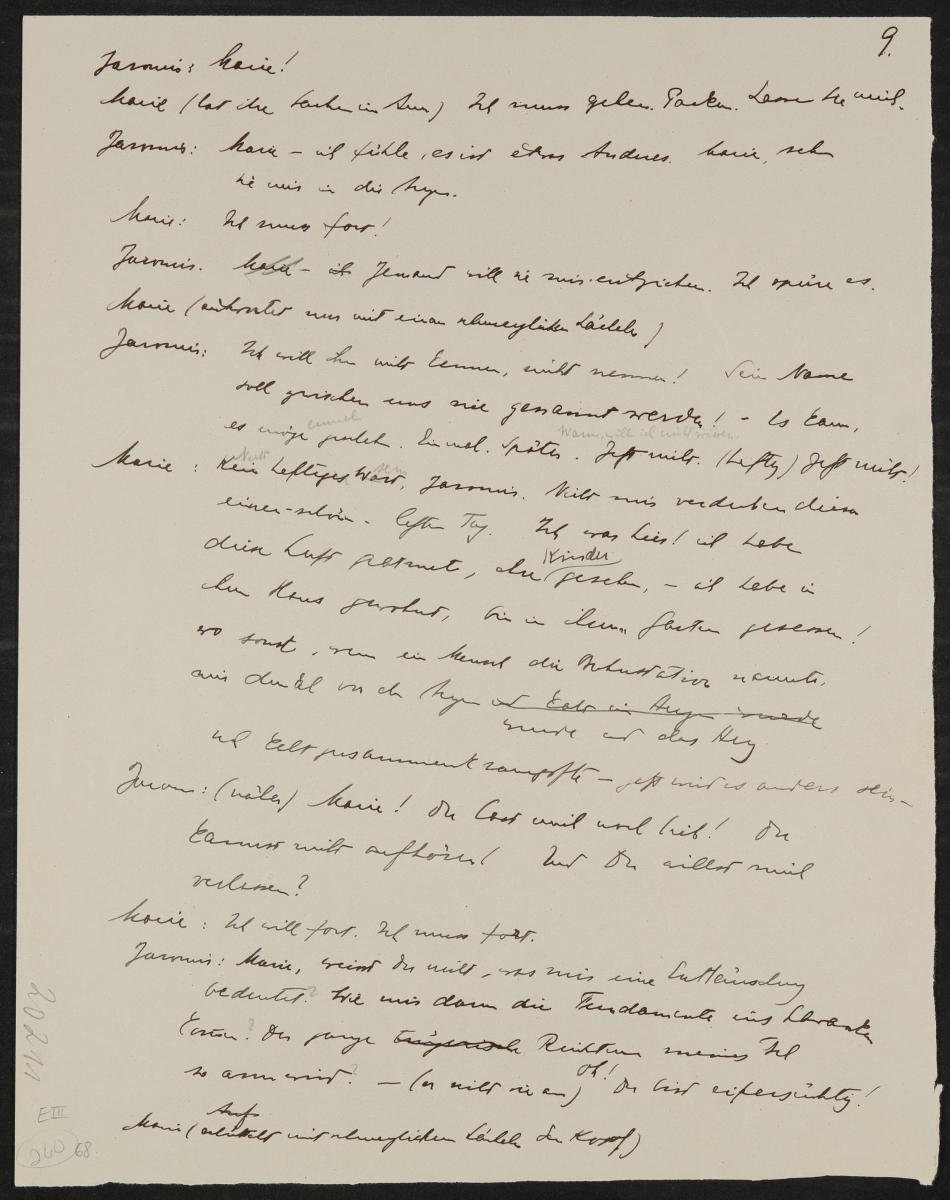 9.
Jaromir: Marie!
Marie (hat ihre Sachen im Arm) Ich muss gehen. Packen. Lassen Sie mich.
Jaromir: Marie – ich fühle, es ist etwas Anderes. Marie, sehn
Sie mir in die Augen.
Marie: Ich muss fort!
Jaromir. Marie – Jemand will Sie mir entziehen. Ich spüre es.
Marie (antwortet nur mit einem schmerzlichen Lächeln)
Jaromir: Ich will ihn nicht kennen, nicht nennen! Sein Name
soll zwischen uns nie genannt werden! – Es kann,
einmal
es möge geschehn. Einmal. Später. Jetzt nicht. (heftig) Jetzt nicht!
Wann, will ich nicht wissen
Nicht sein
Marie: Kein heftiges Wort, Jaromir. Nicht mir verderben diesen
einen – schön – letzten Tag. Ich war hier! ich habe
diese Luft geatmet, Ihre Kinder gesehen, – ich habe in
Ihrem Haus gewohnt, bin in Ihrem Garten gesessen!
wo sonst, wenn ein Mensch die Bahnstation nannte,
mir dunkel vor den Augen und kalt im Augen wurde
wurde und das Herz
sich kalt zusammenkrampfte – jetzt wird es anders sein –
Jarom: (näher) Marie! Du hast mich noch lieb! Du
kannst nicht aufhören! Und Du willst mich
verlassen?
Marie: Ich will fort. Ich muss fort.
Jaromir: Marie, weisst Du nicht, was mir eine Enttäuschung
bedeutet? Wie mir dann die Fundamente ins Schwanken
kommen? Der ganze trügerische Reichtum meines Ich
so arm wird? – (er sieht sie an) Oh! Du bist eifersüchtig!
Auf
Marie (schüttelt mit schmerzlichem Lächeln den Kopf)
20211
E III
240 68